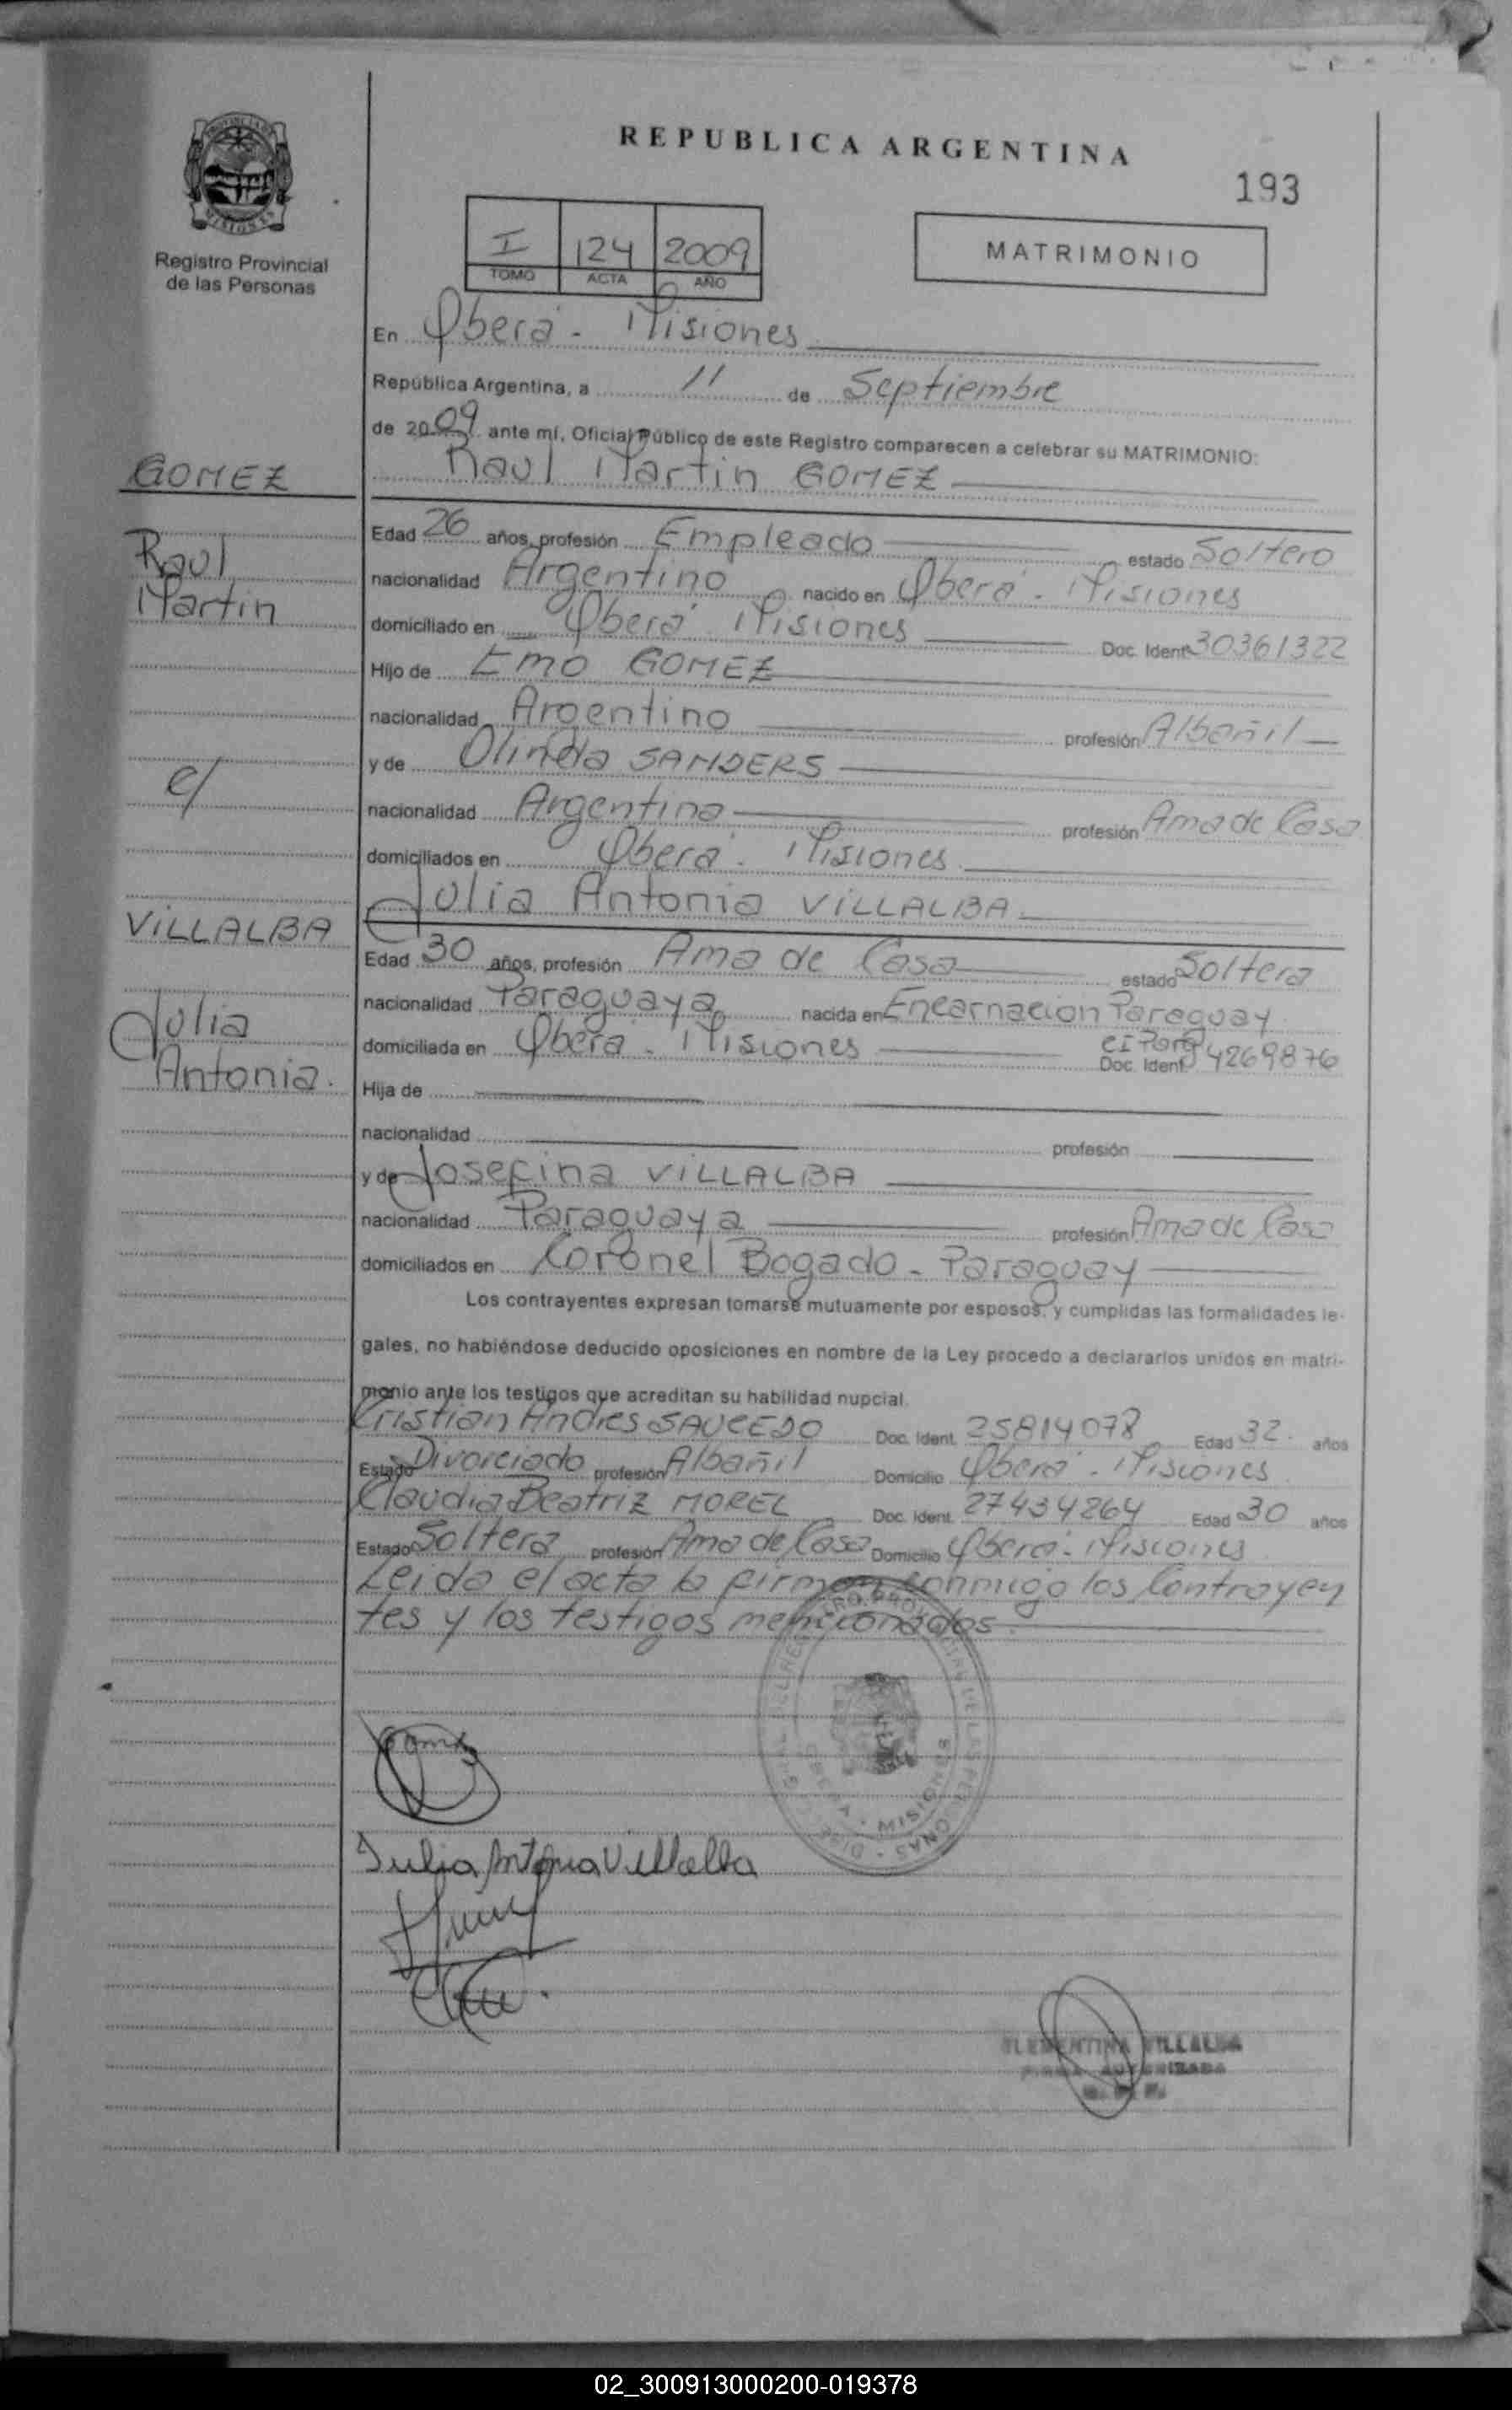 REPUBLICA ARGENTINA
193
Registro Provincial
de las Personas
I 124 2009
TOMO ACTA AÑO
MATRIMONIO
En Oberá - Misiones
República Argentina, a 11 de Septiembre
de 2009 ante mí, Oficial Público de este Registro comparecen a celebrar su MATRIMONIO:
Raul Martin GOMEZ
GOMEZ
Raul
Martin
Edad 26 años, profesión Empleado estado Soltero
nacionalidad Argentino nacido en Oberá - Misiones
domiciliado en Oberá Misiones Doc. Ident 30361322
Hijo de Emo GOMEZ
nacionalidad Argentino profesión Albañil
y de Olinda SANDERS
c/
nacionalidad Argentina profesión Ama de Casa
domiciliados en Oberá - Misiones
Julia Antonia VILLALBA
VILLALBA
Julia
Antonia.
Edad 30 años, profesión Ama de Casa estado Soltera
nacionalidad Paraguaya nacida en Encarnacion Paraguay
domiciliada en Oberá - Misiones CI Parag Doc. Ident 4269876
Hija de
nacionalidad profesión
y de Josefina VILLALBA
nacionalidad Paraguaya profesión Ama de Casa
domiciliados en Coronel Bogado - Paraguay
Los contrayentes expresan tomarse mutuamente por esposos, y cumplidas las formalidades le-
gales, no habiéndose deducido oposiciones en nombre de la Ley procedo a declararlos unidos en matri-
monio ante los testigos que acreditan su habilidad nupcial.
Cristian Andres SAUCEDO Doc. Ident. 25814078 Edad 32 años
Estado Divorciado profesión Albañil Domicilio Oberá - Misiones
Claudia Beatriz MOREL Doc. Ident. 27434264 Edad 30 años
Estado Soltera profesión Ama de Casa Domicilio Oberá - Misiones
Leida el acta la firman conmigo los Contrayen
tes y los testigos mencionados.
MISIONES
Gomez
Julia Antonia Villalba
CLEMENTINA VILLALBA
FIRMA AUTORIZADA
02_300913000200-019378